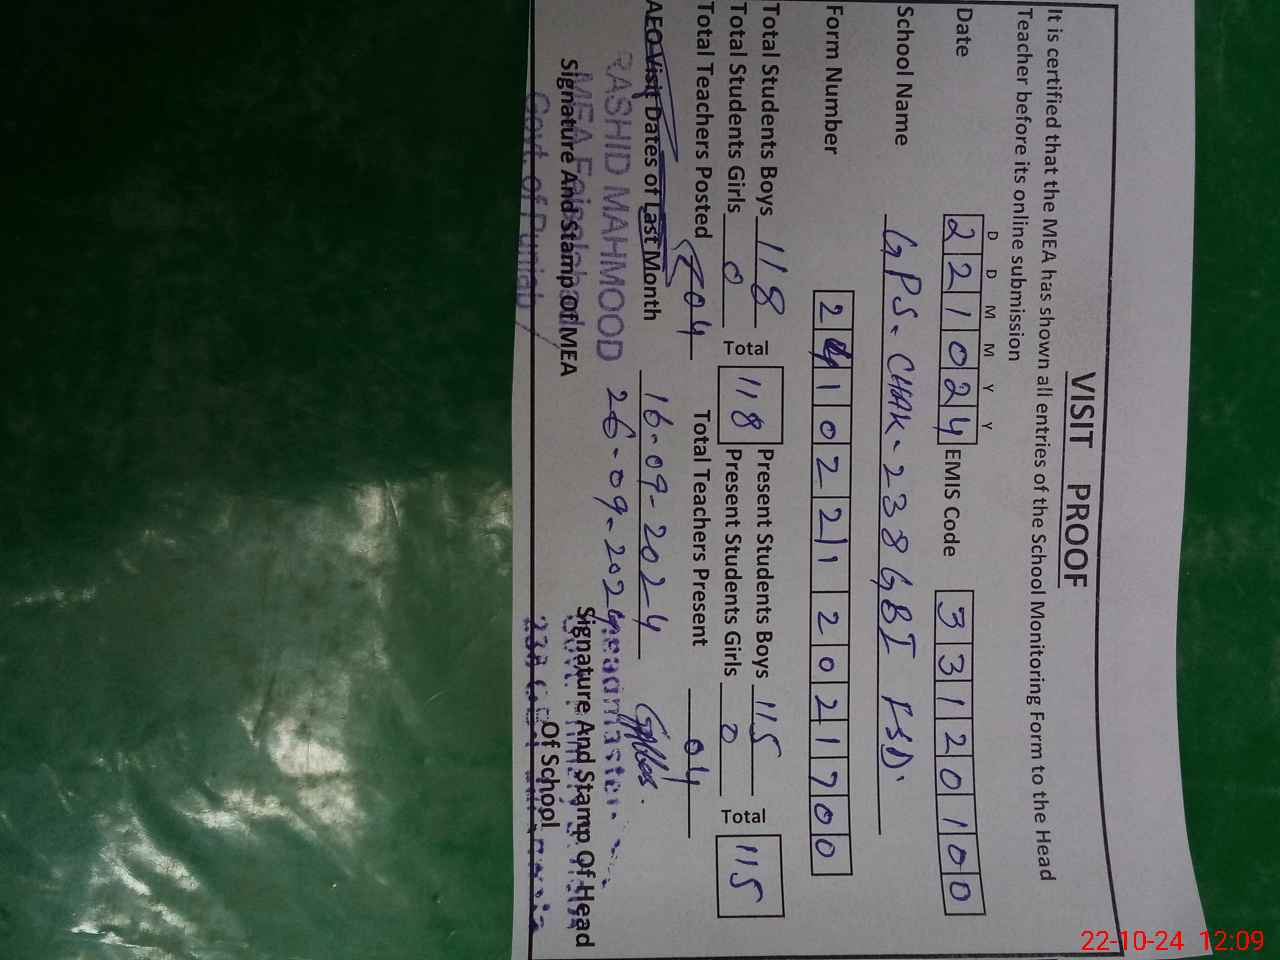 VISIT PROOF
It is certified that the MEA has shown all entries of the School Monitoring Form to the Head
Teacher before its online submission
D D M M Y Y
Date 221024 EMIS Code 33120100
School Name GPS. CHAK. 238 GBI FSD.
Form Number 24102211202021700
Total Students Boys 118 Present Students Boys 115
Total Students Girls 0 Total 118 Present Students Girls 0 Total 115
Total Teachers Posted 04 Total Teachers Present 04
AEO Visit Dates of Last Month 16-09-2024
26-09-2024
RASHID MAHMOOD
MEA Faisalabad
Govt. of Punjab
Signature And Stamp Of MEA
Headmaster
Signature And Stamp Of Head
Of School
22-10-24 12:09